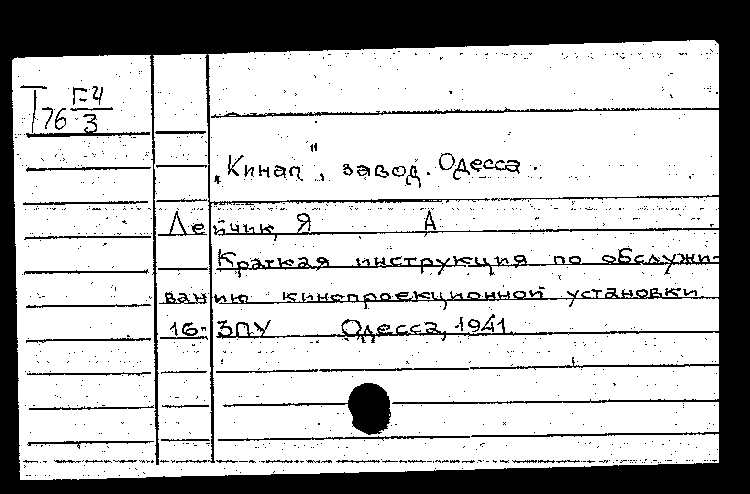 Т76 Г-4
3
„Кинап", завод. Одесса.
Лейчик, Я А
Краткая инструкция по обслужи-
ванию кинопроекционной установки
16-ЗПУ Одесса, 1941